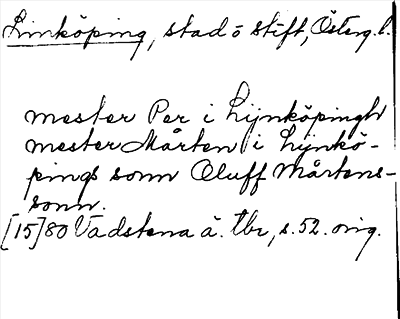 Linköping, stad o stift, Österg. l.
mester Per i Lijnköpingh
mester Mårten i Lijnkö-
pings sonn Oluff Mårtens-
sonn.
[15]80 Vadstena ä. tbr, s. 52. orig.